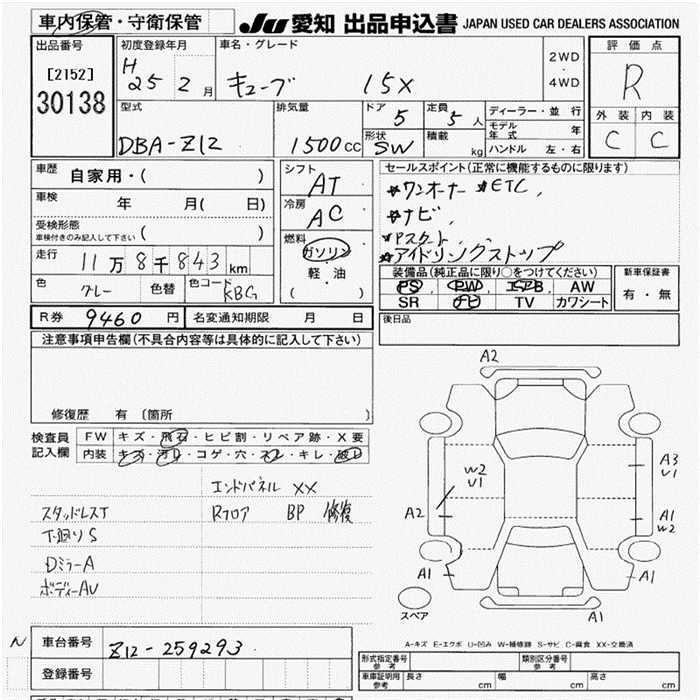 車内保管・守衛保管 JU 愛知 出品申込書 JAPAN USED CAR DEALERS ASSOCIATION
出品番号 初度登録年月 車名・グレード 評価点
[2152] H 25 2 月 キューブ 15X 2WD・4WD R
30138
型式 排気量 ドア 定員 ディーラー・並行 外装 内装
DBA-Z12 1500cc 5 5人 モデル年式 年 C C
形状 SW 積載 kg ハンドル 左・右
車歴 自家用・( ) シフト AT セールスポイント(正常に機能するものに限ります)
車検 年 月( 日) 冷房 AC ★ワンオーナー ★ETC,
受検形態 ( ) ★ナビ,
車検付きのみ記入して下さい 燃料 ★Pスタート,
走行 11万8千843km ガソリン ★アイドリングストップ
軽・油 装備品(純正品に限り○をつけてください) 新車保証書
色 グレー 色替 色コード KBG ( ) PS PW エアB AW 有・無
SR ナビ TV カワシート
R券 9460円 名変通知期限 月 日 後日品
注意事項申告欄(不具合内容等は具体的に記入して下さい)
修復歴 有 〔箇所 〕
検査員記入欄 FW キズ・飛石・ヒビ割・リペア跡・X要
内装 キズ・汚レ・コゲ・穴・スレ・キレ・破レ
エンドパネル XX
スタッドレスT Rフロア BP 修復
T廻りS
DミラーA
ボディーAU
A2
W2
U1
A3
U1
A2
A1
W2
A1
A1
スペア
A1
A-キズ E-エクボ U-凹み W-補修跡 S-サビ C-腐食 XX-交換済
N 車台番号 Z12-259293
登録番号
形式指定番号 参考 類別区分番号 参考
車庫証明用 参考 長さ cm 幅 cm 高さ cm